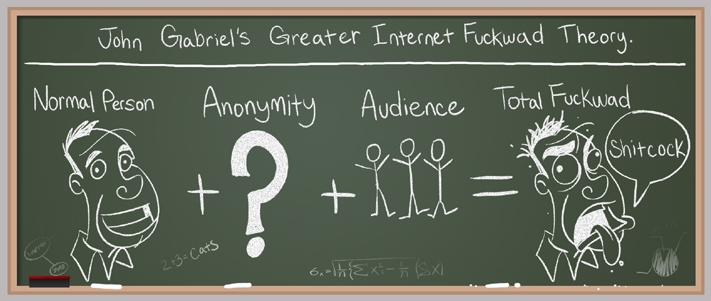 John Gabriel's Greater Internet Fuckwad Theory.
Normal Person
Anonymity
Audience
Total Fuckwad
+ ? + =
Shitcock
2+3=Cats